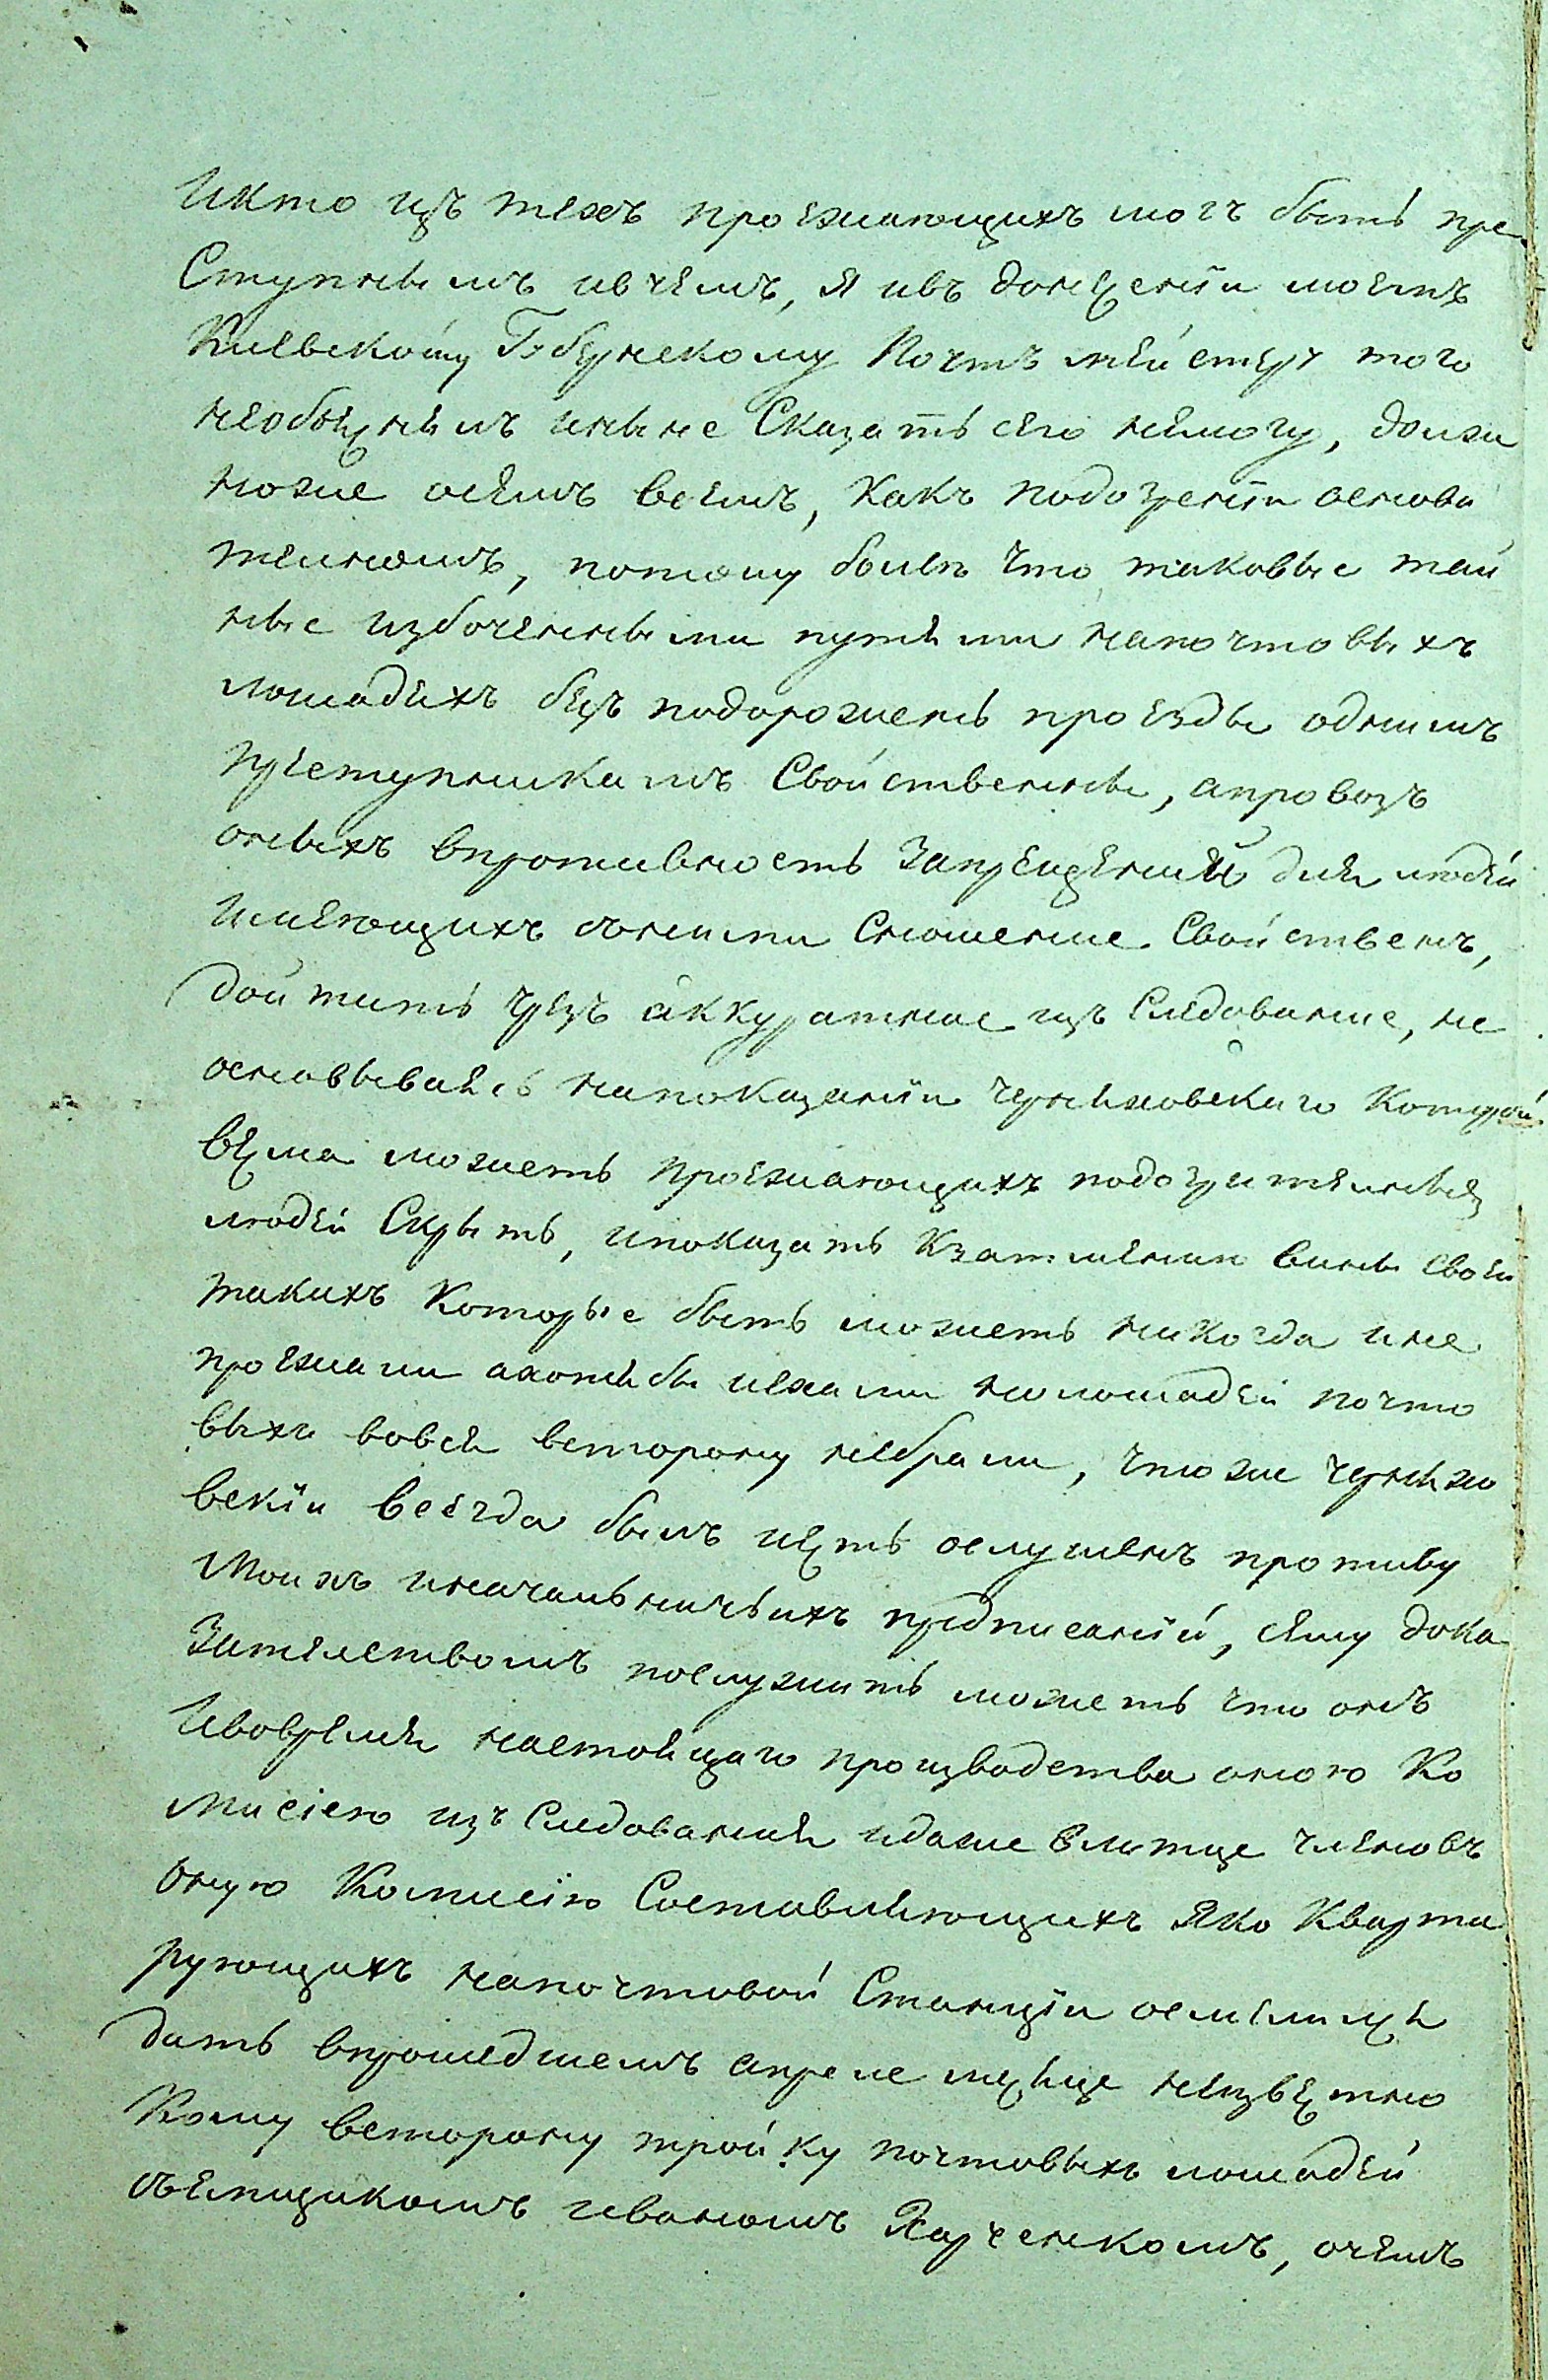 Икто изъ техъ проезжающихъ могъ быть пре
Ступнымъ ивчемъ, я ивъ донесении моемъ
Киевскому Губернскому Почтъ мейстеру того
необъяснялъ иныне Сказать сего немогу, долж
ноже осемъ всемъ, какъ подозрении основа
тельномъ, потому более что таковые тай
ные избоченными путями напочтовыхъ
лошадяхъ безъ подорожень проезды однимъ
преступникамъ Свойственны, апровозъ
оныхъ впротивность Запрещений для людей
имеющихъ сними Сношение Свойственъ,
дойтить чрезъ аккуратное изъ Следование, не
основываясь напоказании черняховскаго Которой
весма можетъ проезжающихъ подозрительныхъ
людей Скрыть, ипоказать Кзатмению вины своей
такихъ Которые быть можеть никогда ине
проезжали ахотябы иехали нолошадей почто
выхъ вовсе всторону небрали, чтоже черняхо
вский всегда былъ иесть ослушенъ противу
Моихъ иначальничьихъ предписаний, сему дока
зателствомъ послужить можеть что онъ
Ивовремя настоящаго производства оною Ко
мисіею изъ Следования идаже влитце членовъ
Оную Комисію Составляющихъ яко Кварти
рующихъ напочтовой Станціи осмелился
дать впрошедшемъ апреле месяце неизвестно
Кому всторону тройку почтовыхъ лошадей
съемщикомъ иваномъ Харченкомъ, очемъ